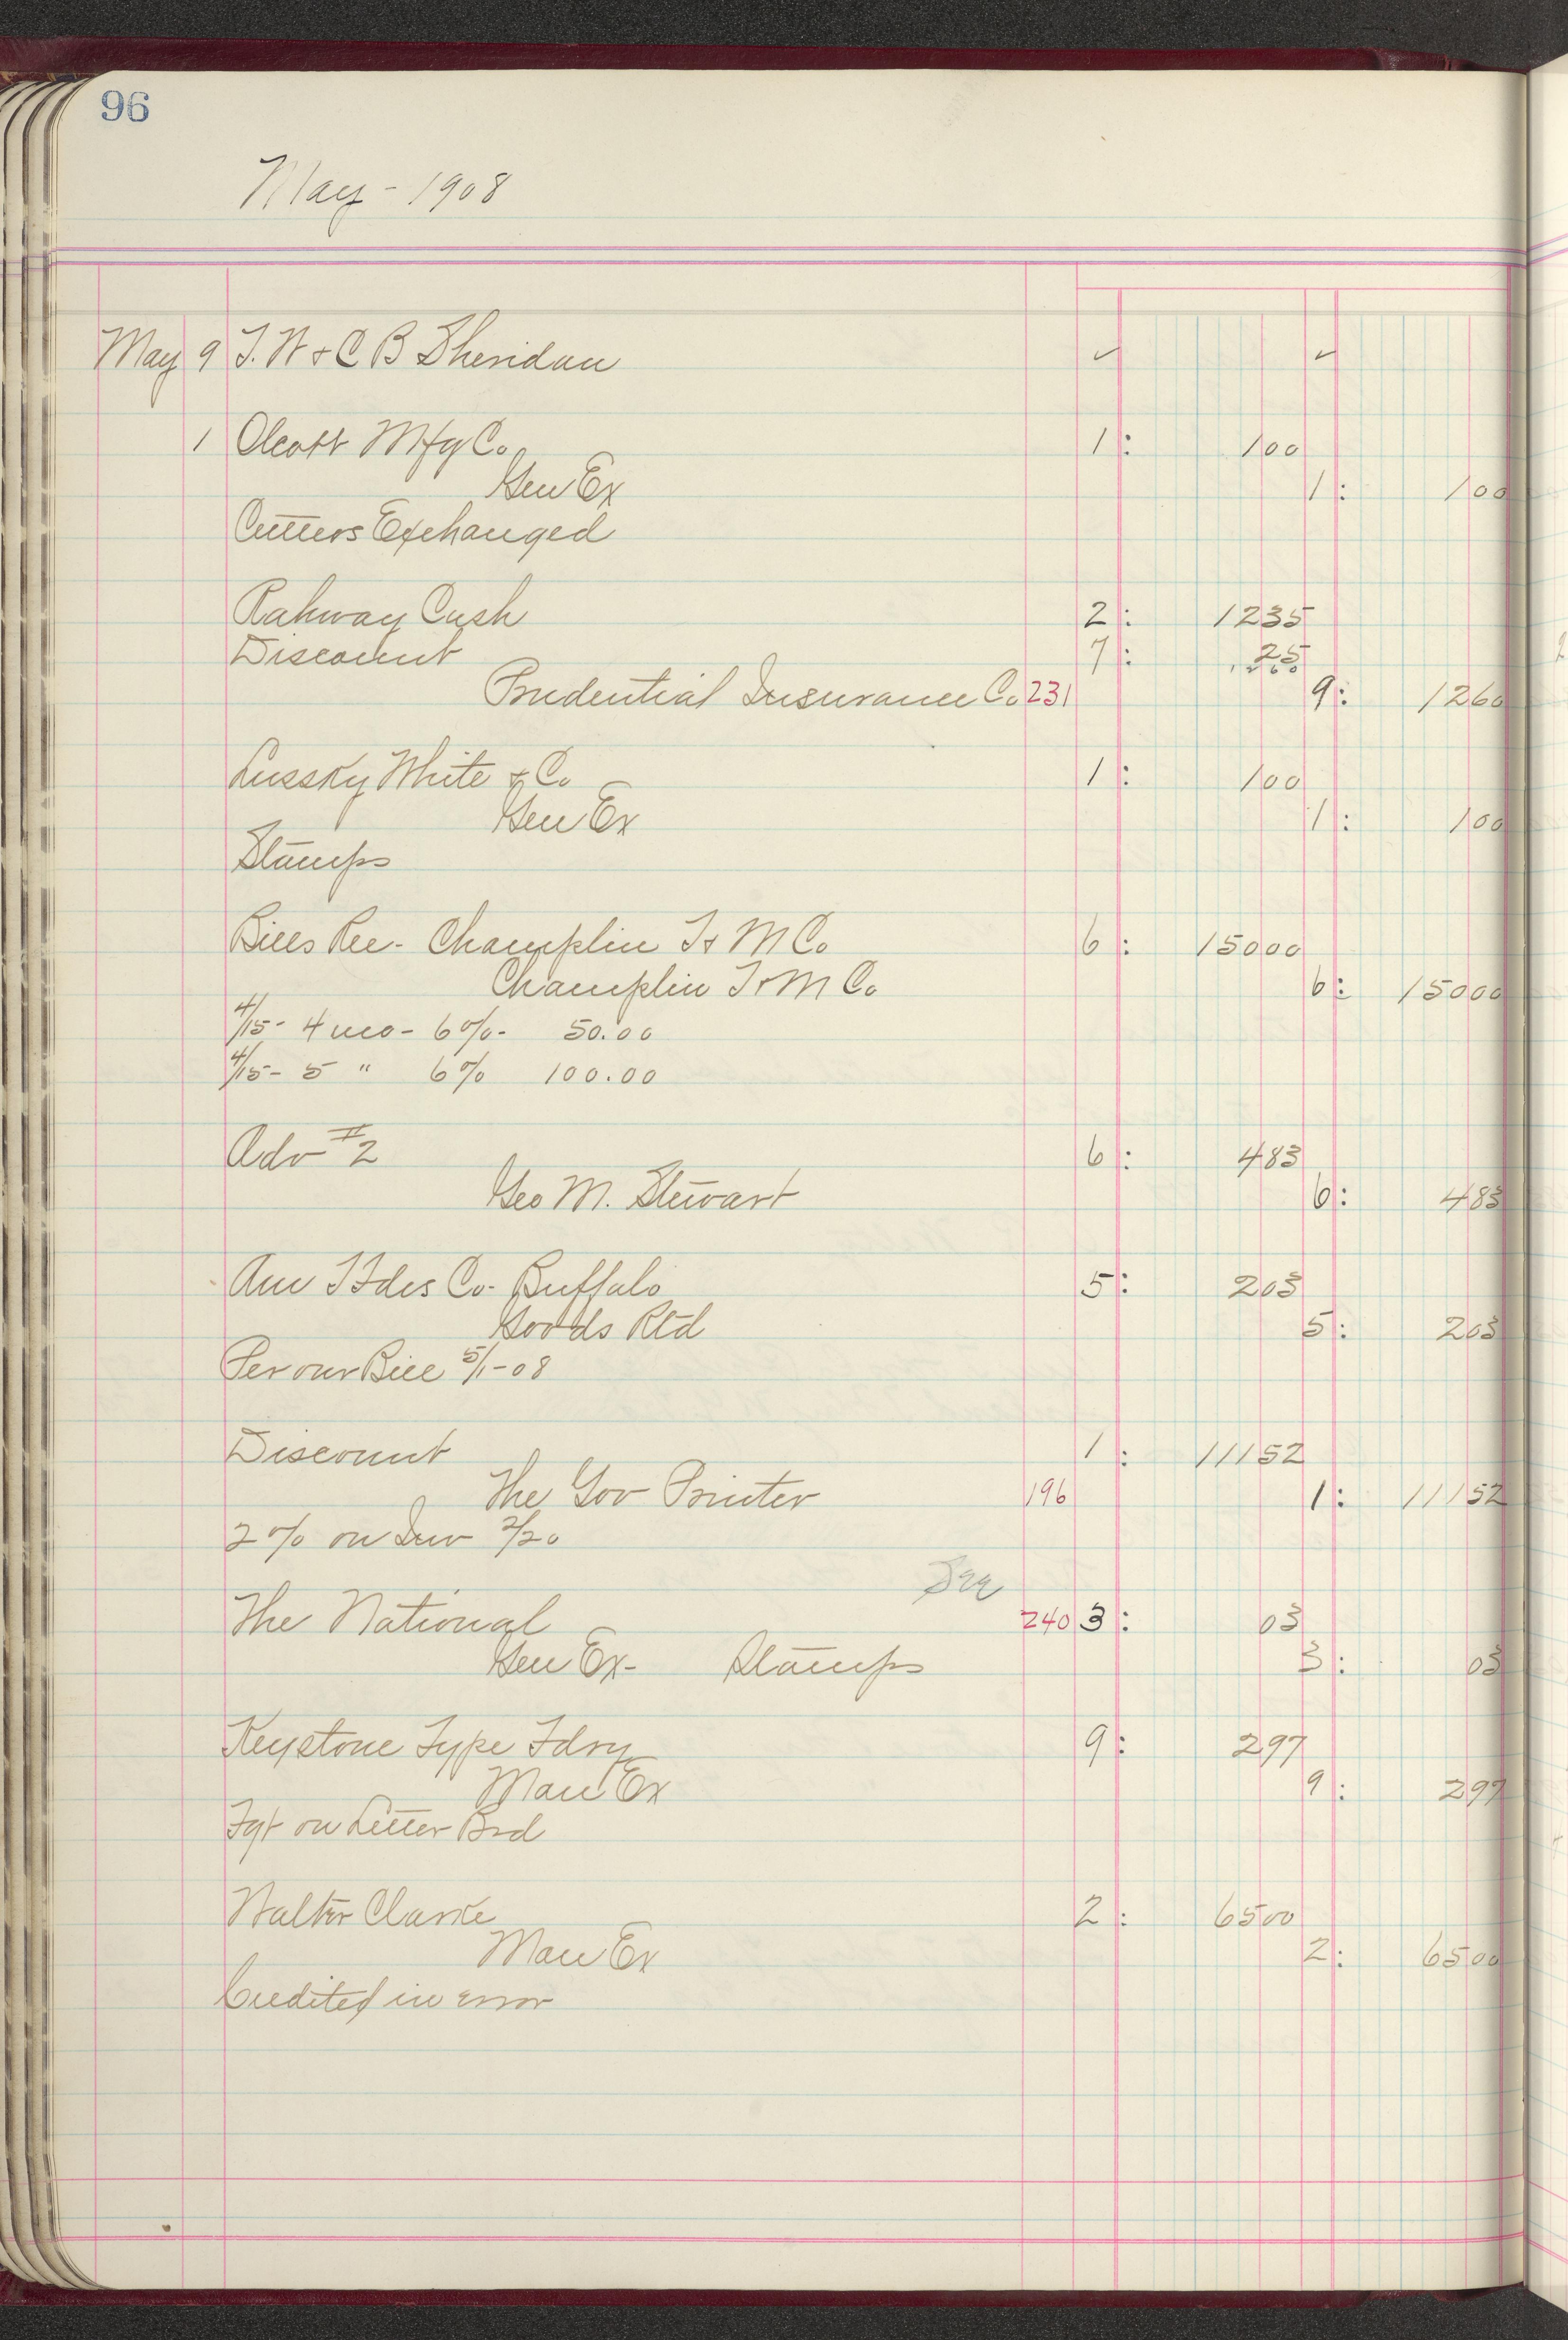 96
May - 1908
May 9 T. W & C B Sheridan ✓ ✓
1 Olcott Mfg Co. 1: 100
Gen Ex 1: 100
Cutters Exchanged
Rahway Cash 2: 1235
Discount 7: 25
1260
Prudential Insurance Co 231 9: 1260
Lussky White & Co 1: 100
Gen Ex 1: 100
Stamps
Bills Rec - Champlin T & M Co 6: 15000
Champlin T & M Co 6: 15000
4/15 - 4 mo - 6% - 50.00
4/15 - 5 " 6% 100.00
Adv #2 6: 483
Geo M. Stewart 6: 483
Am T Fdrs Co. Buffalo 5: 203
Goods Rtd 5: 203
Per our Bill 5/1-08
Discount 1: 11152
The Gov Printer 196 1: 11152
2% on Inv 2/20
The National 240 3: 03
Gen Ex - Stamps 3: 03
Keystone Type Fdry 9: 297
Man Ex 9: 297
Fgt on Letter Brd
Walter Clarke 2: 6500
Man Ex 2: 6500
Credited in error